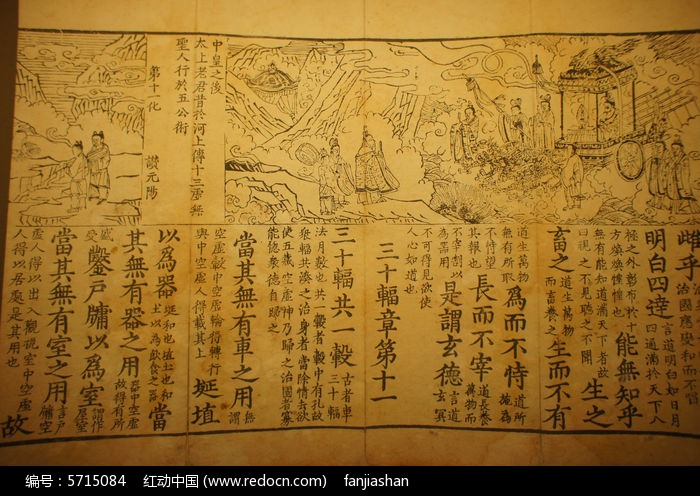 中皇之後
太上老君昔於河上傳十三虛無
聖人行於五公術
第十一化　讚元陽
雌乎
明白四達 言道明白如日月四通滿於天下八
極之外彰布於十方煥煥惶惶也 能無知乎
無有能知道滿天下者故曰視之不見聽之不聞 生之
畜之 道生萬物而畜養之 生而不有
道生萬物無有所取 為而不恃 道所施為
不恃望其報也 長而不宰 道長養萬物而
不宰割以為器用 是謂玄德 言道玄冥
不可得見欲使人心如道也
三十輻章第十一
三十輻共一轂 古者車三十輻
法月數也共一轂者轂中有孔故眾輻共湊之治身者當除情去欲
使五藏空虛神乃歸之治國者寡
當其無有車之用 無謂
空虛轂中空虛輪得轉行轝中空虛人得載其上 埏埴
以為器 埏和也埴土也和土以為飲食之器 當
其無有器之用 器中空虛故得有所
盛受 鑿戶牖以為室 謂作屋室
當其無有室之用 言戶牖空
虛人得以出入觀視室中空虛人得以居處是其用也 故
编号：5715084 红动中国 (www.redocn.com) fanjiashan